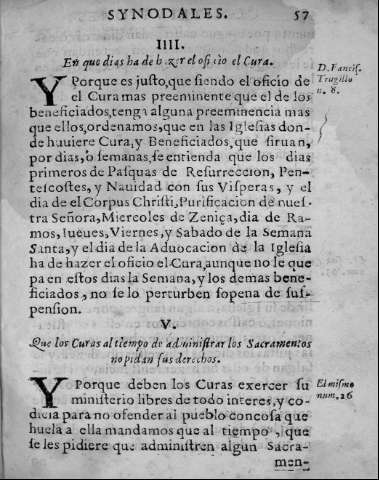 SYNODALES. 57
IIII.
En que dias ha de hazer el oficio el Cura.
D. Fancis.
Trugillo
n. 8.
Y Porque es justo, que siendo el oficio de
el Cura mas preeminente que el de los
beneficiados, tenga alguna preeminencia mas
que ellos, ordenamos, que en las Iglesias don-
de huuiere Cura, y Beneficiados, que siruan,
por dias, ò semanas, se entienda que los dias
primeros de Pasquas de Resurreccion, Pen-
tescostes, y Nauidad con sus Visperas, y el
dia de el Corpus Christi, Purificacion de nues-
tra Señora, Miercoles de Zeniça, dia de Ra-
mos, Iueues, Viernes, y Sabado de la Semana
Santa, y el dia de la Aduocacion de la Iglesia
ha de hazer el oficio el Cura, aunque no le que
pa en estos dias la Semana, y los demas bene-
ficiados, no se lo perturben sopena de sus-
pension.
V.
Que los Curas al tiempo de administrar los Sacramentos
no pidan sus derechos.
El mismo
num. 26
Y Porque deben los Curas exercer su
ministerio libres de todo interes, y co-
dicia para no ofender al pueblo con cosa que
huela a ella mandamos que al tiempo, que
se les pidiere que administren algun Sacra-
men-